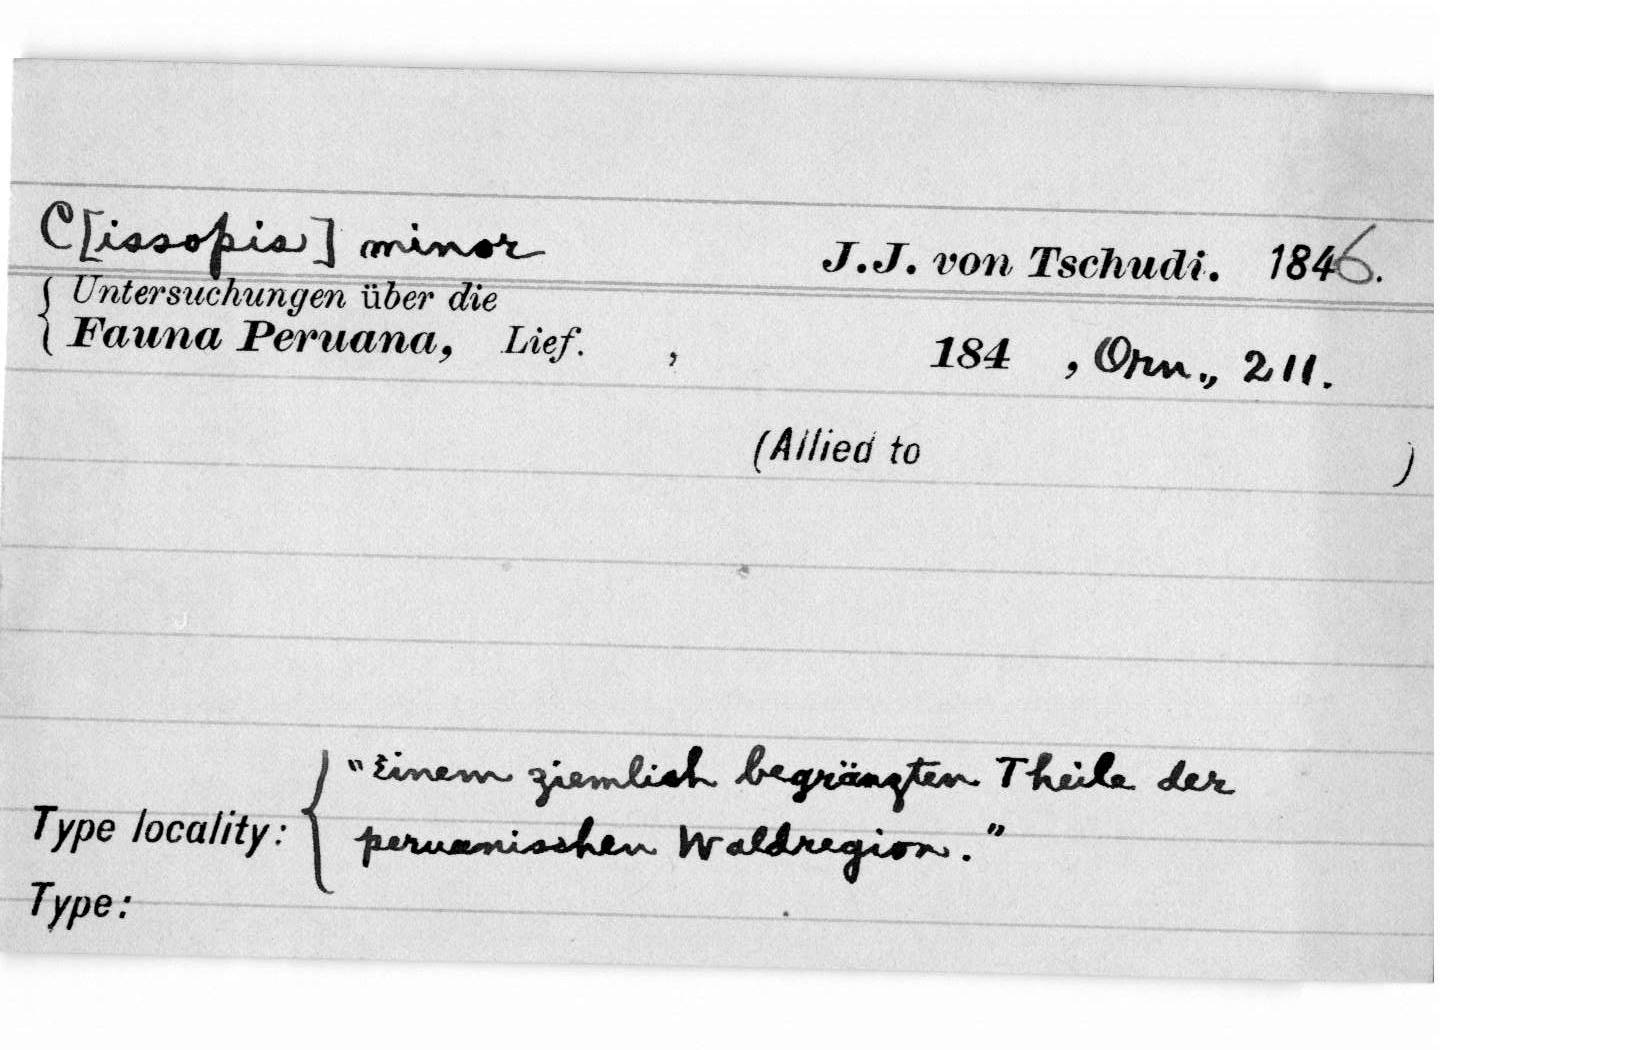 C[issopis] minor J.J. von Tschudi. 1846.
Untersuchungen über die
Fauna Peruana, Lief. , 184 , Orn., 211.
(Allied to )
"Einem ziemlich begränzten Theile der
Type locality: peruanischen Waldregion."
Type: